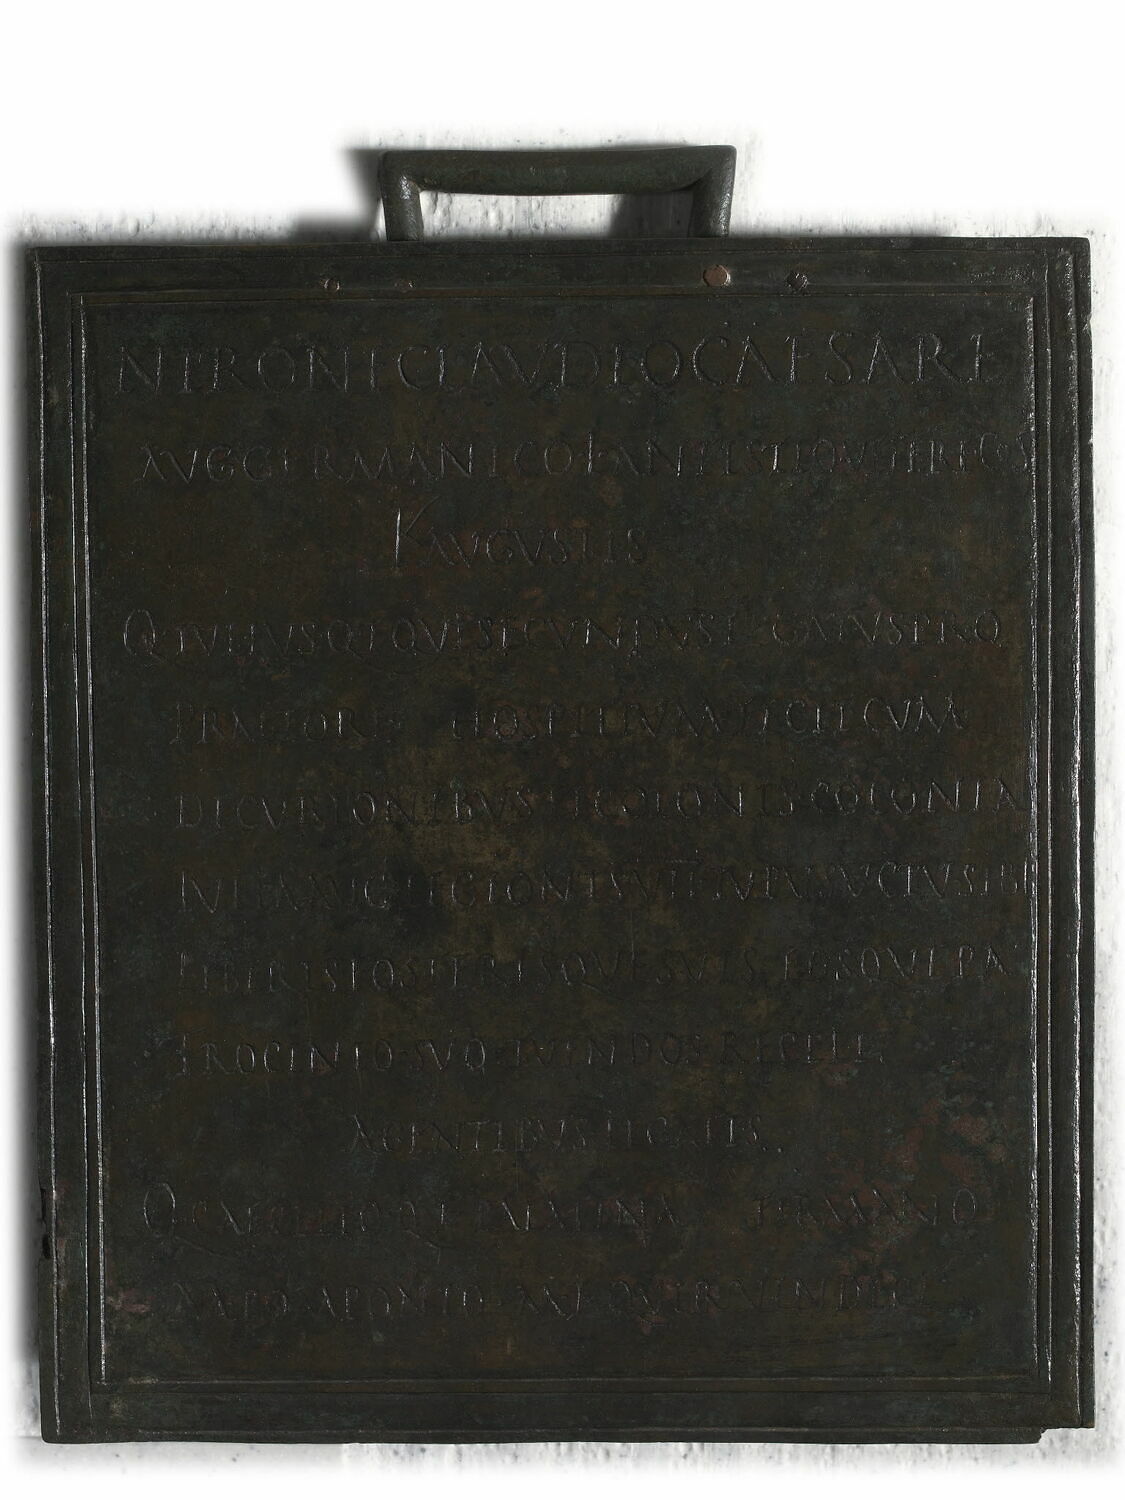 NERONE CLAVDIO CAESARE
AVG GERMANICO L ANTISTIO VETERE COS
K AVGVSTIS
Q IVLIVS Q F QVI SECVNDVS LEGATVS PRO
PRAETORE HOSPITIVM FECIT CVM
DECVRIONIBVS ET COLONIS COLONIA
IVLIA AVG LEGIONIS VII TVPVSVCTV SIBI
LIBERIS POSTERISQVE SVIS EOSQVE PA
TROCINIO SVO TVENDOS RECEPIT
AGENTIBVS LEGATIS
Q CAECILIO Q F PALATINA FIRMANO
M POMPONIO M F QVIR VINDICE